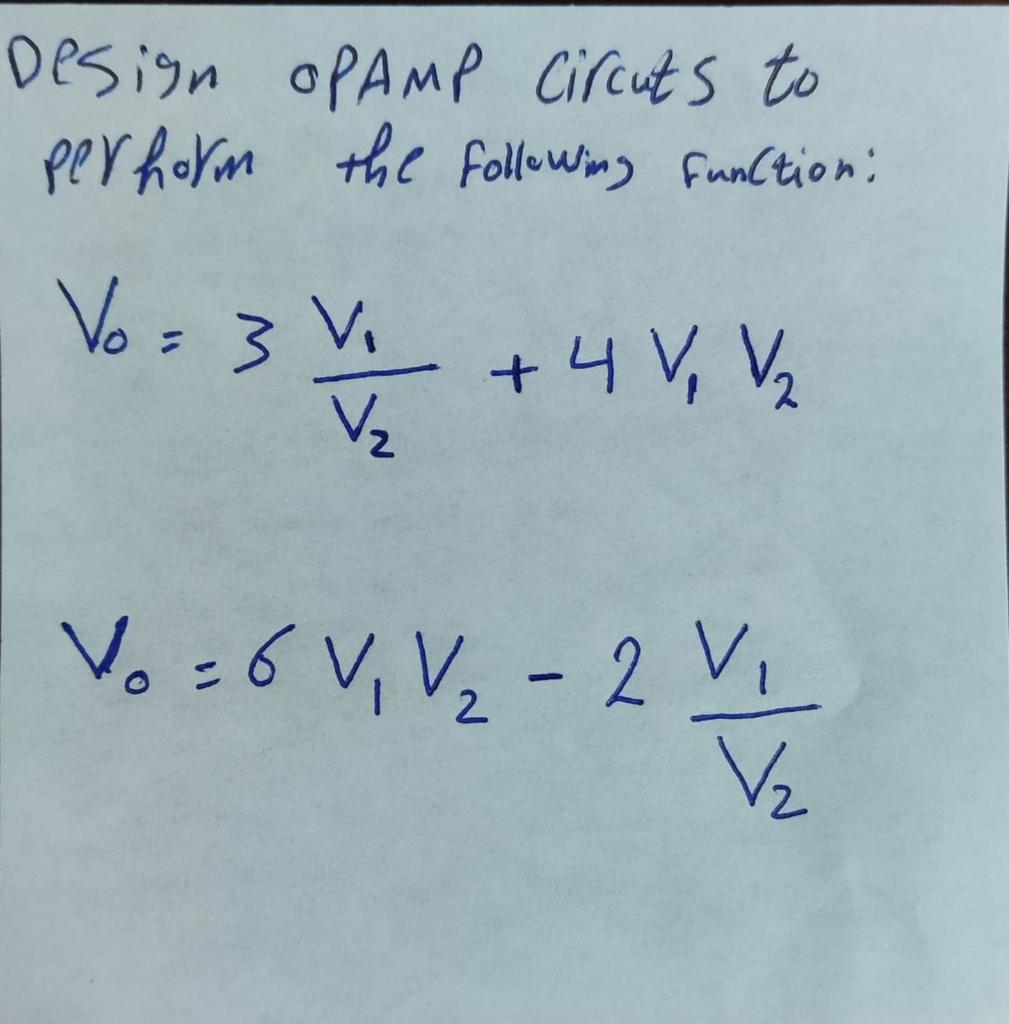 Design OPAMP Circuts to
perform the following function:
V₀ = 3 V₁/V₂ + 4 V₁ V₂
V₀ = 6 V₁ V₂ - 2 V₁/V₂